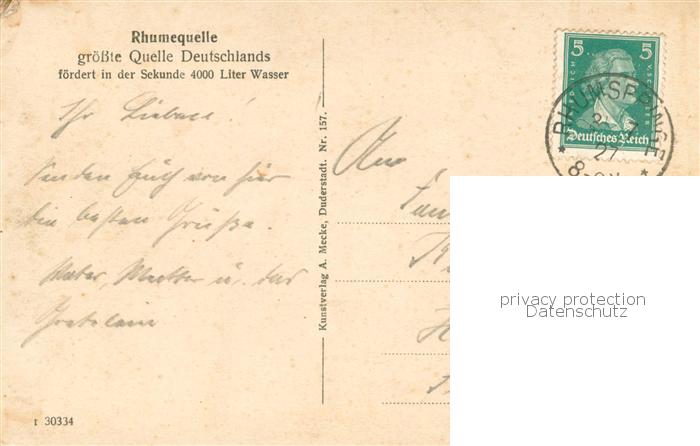 Rhumequelle
größte Quelle Deutschlands
fördert in der Sekunde 4000 Liter Wasser
Ihr Lieben!
Senden Euch von hier
die besten Grüße.
Vater, Mutter u. das
Kunstverlag A. Mecke, Duderstadt. Nr. 157.
An
5 5
FRIEDRICH V. SCHILLER
Deutsches Reich
RHUMSPRINGE
27
privacy protection
Datenschutz
I 30334